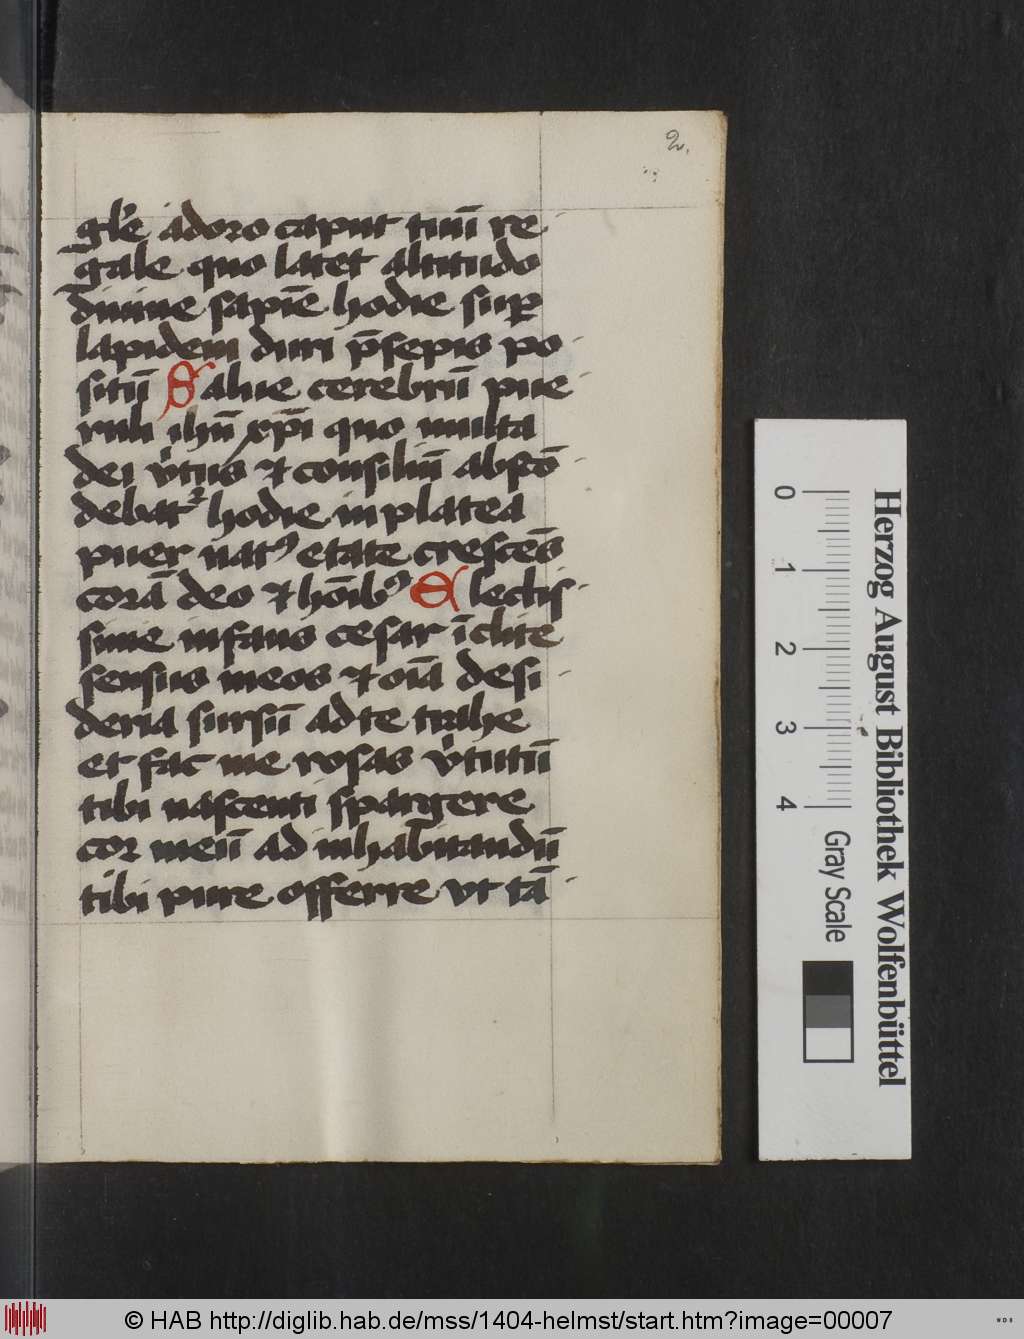 2.
gl'e adoro caput tuū re
gale quo latet altitudo
diuine sapiē hodie sup
lapidem duri p̄sepis po
sitū Salue cerebrū pue
ruli ihū xp̄i quo multa
dei v̓tus et consiliū abscō
debatᷣ hodie in platea
puer natꝰ etate crescēs
corā deo et hōībꝰ Electis
sime infans cesar īclite
sensus meos et oīā desi
deria sursū ad te trahe
et fac me rosas v̓tutū
tibi nascenti spargere
cor meū ad inhabitandū
tibi pure offerre vt tā
0 1 2 3 4
Gray Scale
Herzog August Bibliothek Wolfenbüttel
© HAB http://diglib.hab.de/mss/1404-helmst/start.htm?image=00007